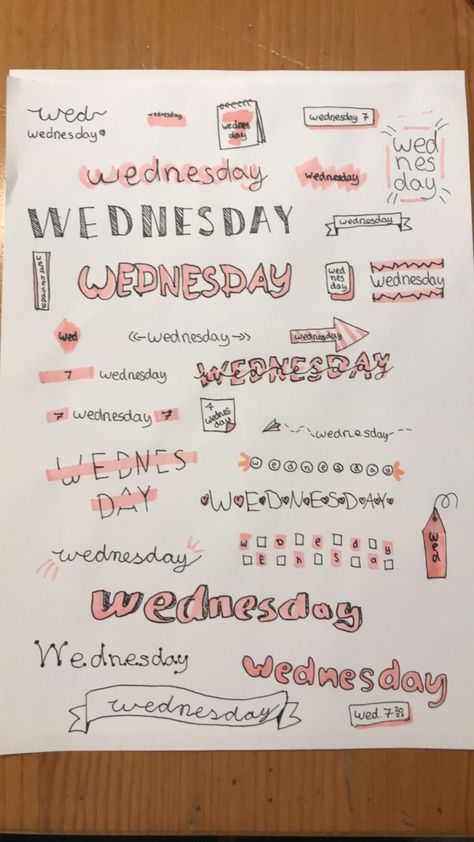 wed
wednesday
wednesday
wednes
day
wednesday 7
wed
nes
day
wednesday
wednesday
WEDNESDAY
wednesday
WEDNESDAY
wed
nes
day
Wednesday
wed
wednesday
wednesday
7 wednesday
WEDNESDAY
7 wednesday 7
7
wednes
day
wednesday
WEDNES
DAY
wednesday
WEDNESDAY
wednesday
w D e d y
e n s a
wednesday
Wednesday
wednesday
wednesday
wed. 7